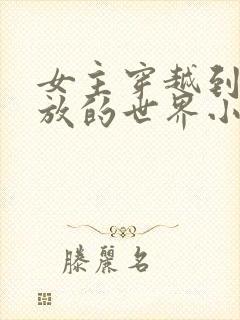 女主穿越到
放的世界小
滕麗名